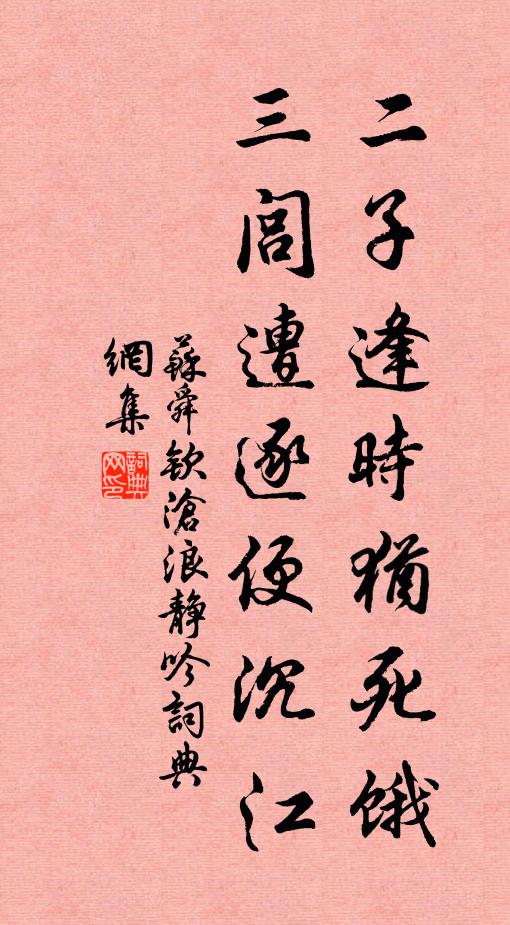 二子逢時猶死餓
三閭遭逐便沉江
蘇舜欽滄浪靜吟詞典
網集
詞典網印